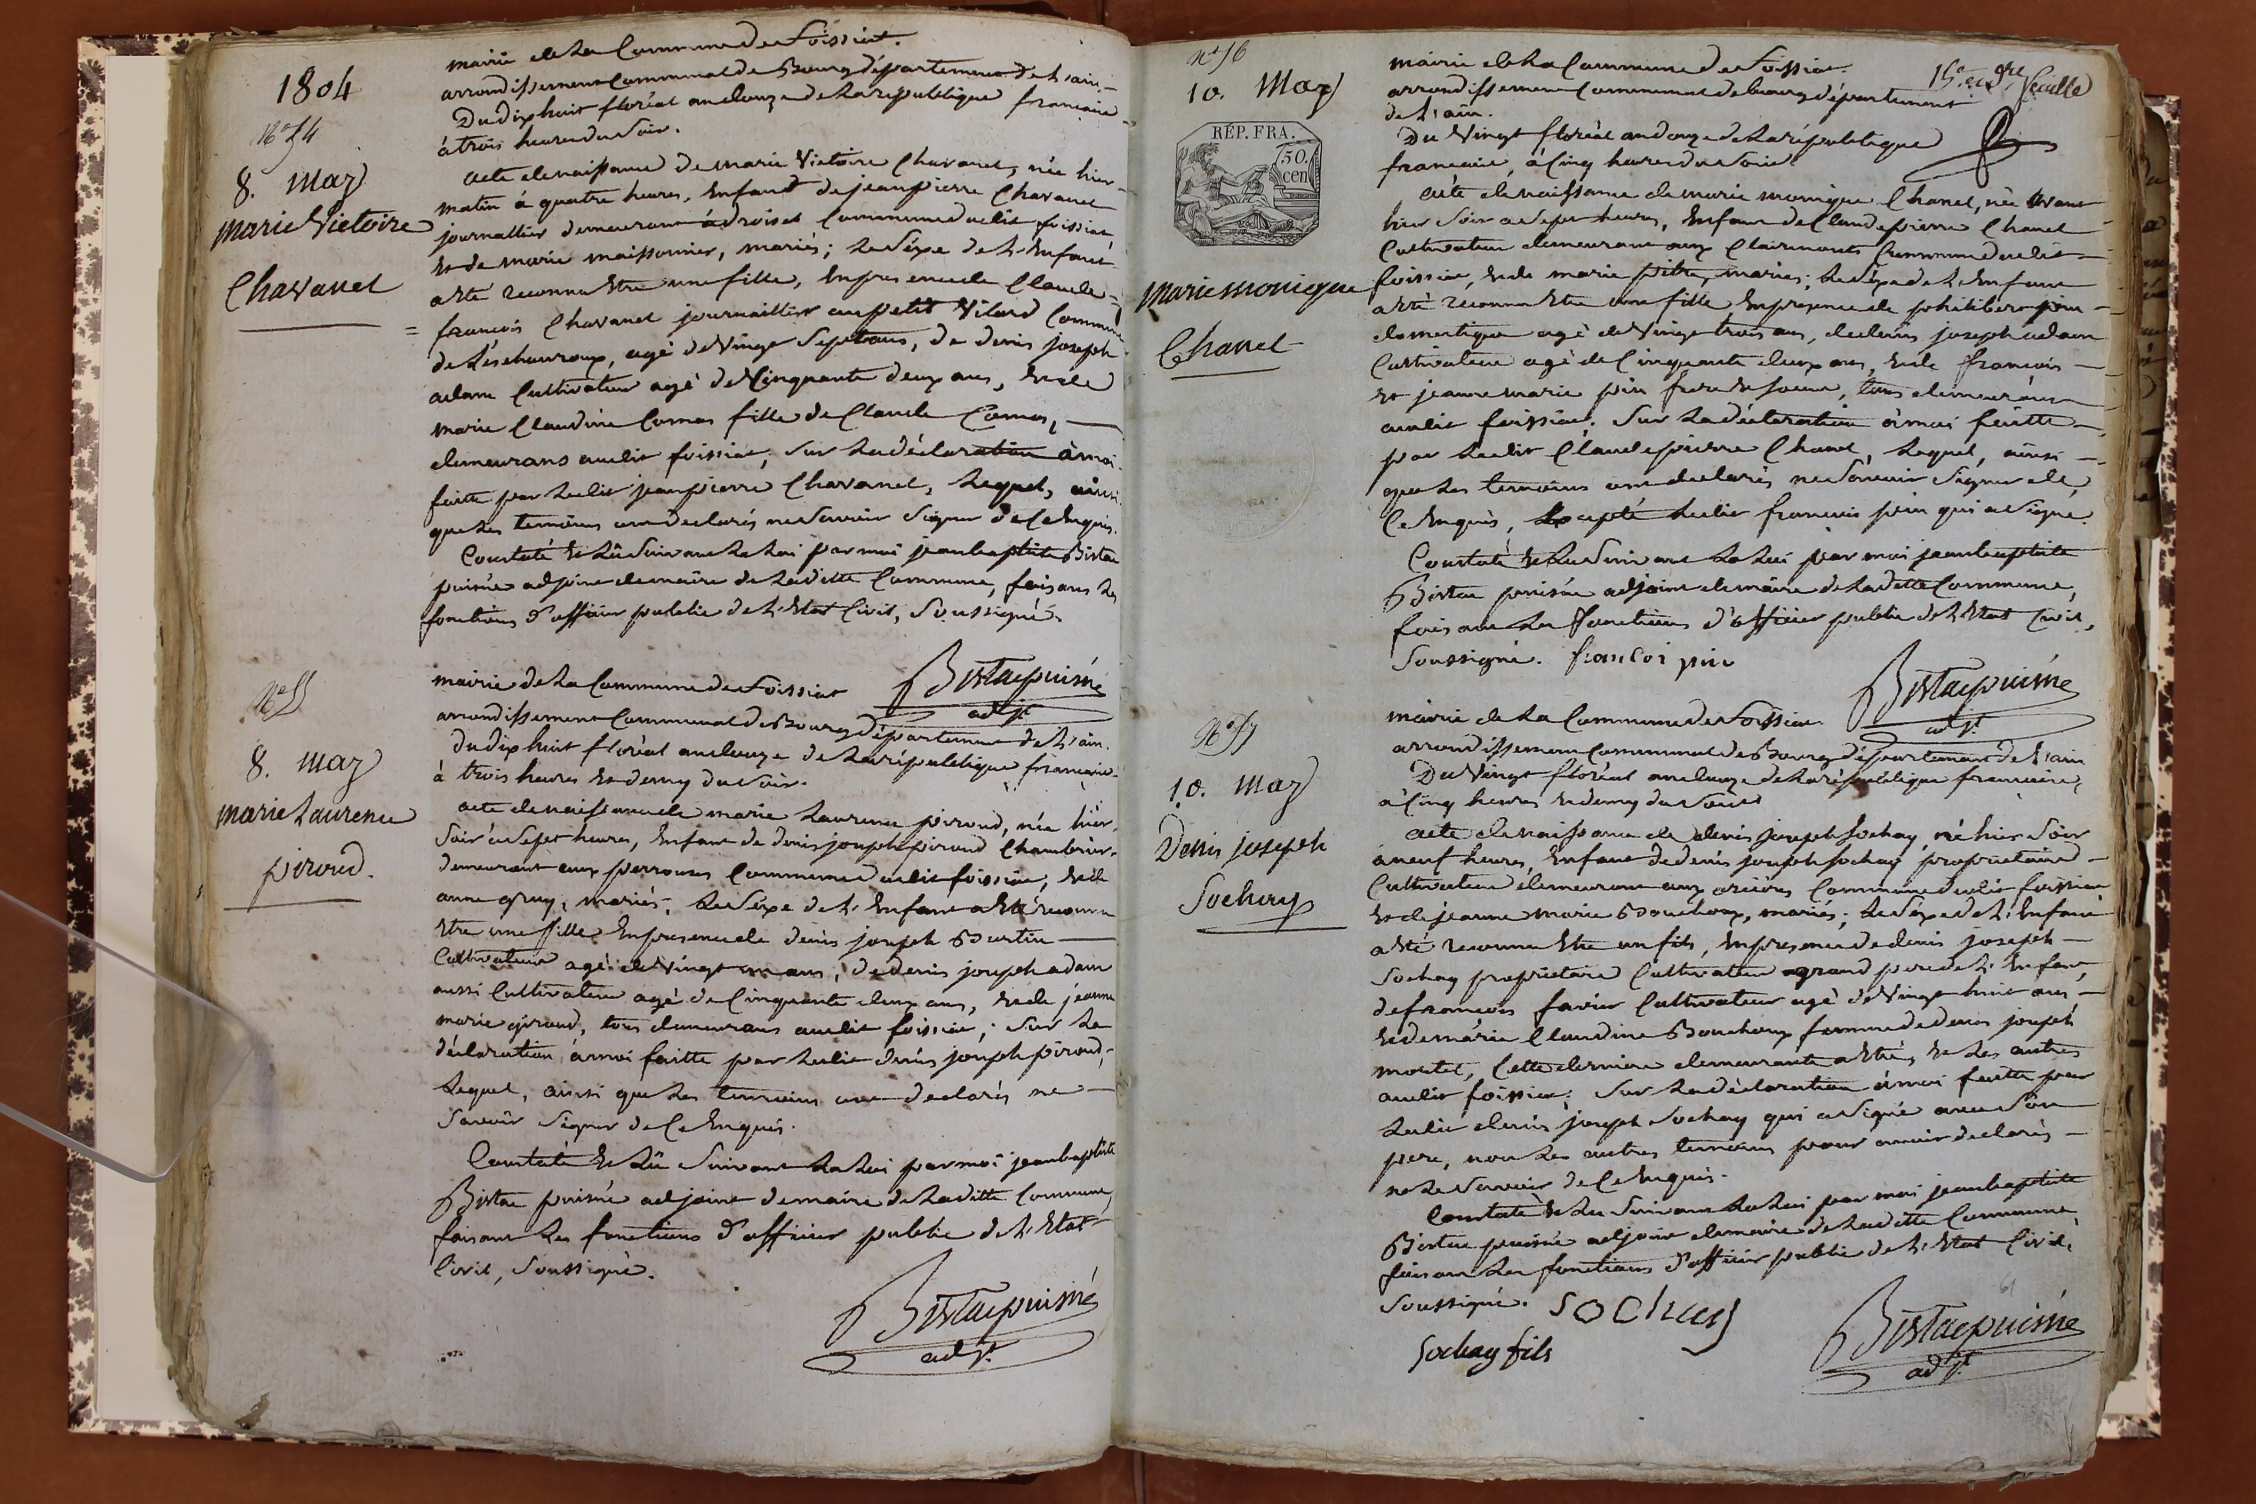 1804
N° 54
8. may
marie Victoire
Chavanel
mairie de la Commune de foissiat.
arrondissement Communal de Bourg département de L'ain.
Du dix huit floréal an douze de la republique francaise
à trois heures du Soir.
acte de naissance de marie Victoire Chavanel, née hier
matin à quatre heures, Enfant de jean pierre Chavanel
journallier demeurant à droiset Commune dudit foissiat,
Et de marie maissonnier, mariés; Le Séxe de L'Enfant
a Eté reconnu Etre une fille, En presence de Claude
= francois Chavanel journaillier au petit Vilard Commune
de Léschauroux, agé de Vingt Sept ans, de denis joseph
adam Cultivateur agé de Cinquante deux ans, Et de
marie Claudine Comas fille de Claude Comas,
demeurans audit foissiat, Sur La déclaration à moi
faitte par Ledit jean pierre Chavanel, Lequel, ainsi
que Les temoins ont declarés ne Savoir Signer de Ce Enquis.
Constaté Et Lû Suivant La Loi par moi jean baptiste Bistac
puisné adjoint de maire de Laditte Commune, faisant Les
fonctions d'officier public de L'Etat Civil, Soussigné.
Bistac puisné
adjt.
N° 55
8. may
marie Laurence
piroud.
mairie de La Commune de foissiat
arrondissement Communal de Bourg département de L'ain.
Du dix huit floréal an douze de La république francaise
à trois heures Et demy du Soir.
acte de naissance de marie Laurence piroud, née hier
Soir à Sept heures, Enfant de denis joseph piroud Chambrier
demeurant aux perrouses Commune dudit foissiat, Et de
anne gruy, mariés; Le Séxe de L'Enfant a Eté reconnu
Etre une fille En presence de denis joseph Burtin
Cultivateur agé de Vingt un ans, de denis joseph adam
aussi Cultivateur agé de Cinquante deux ans, Et de jeanne
marie giroud, tous demeurans audit foissiat; Sur La
déclaration à moi faitte par Ledit denis joseph piroud,
Lequel, ainsi que Les temoins ont declarés ne
Savoir Signer de Ce Enquis.
Constaté Et Lû Suivant La Loi par moi jean baptiste
Bistac puisné adjoint de maire de Laditte Commune,
faisant Les fonctions d'officier public de L'Etat
Civil, Soussigné.
Bistac puisné
adjt.
N° 56
10. May
RÉP. FRA.
50.
cen
marie monique
Chanel
15e et dre feuille
mairie de La Commune de foissiat.
arrondissement Communal de bourg département
de L'ain.
Du Vingt floréal an douze de La république
francaise, à Cinq heures du Soir.
acte de naissance de marie monique Chanel, née avant
hier Soir a Sept heures, Enfant de Claude pierre Chanel
Cultivateur demeurant aux Clairmonts Commune dudit
foissiat, Et de marie pitre, mariés; Le Séxe de L'Enfant
a Eté reconnu Etre une fille En presence de philibert pin
domestique agé de Vingt trois ans, de denis joseph adam
Cultivateur agé de Cinquante deux ans, Et de francois
Et jeanne marie pin frere Et Soeur, tous demeurans
audit foissiat. Sur La déclaration à moi faitte
par Ledit Claude pierre Chanel, Lequel, ainsi
que Les temoins ont declarés ne Savoir Signer de
Ce Enquis, Excepté Ledit francois pin qui a Signé.
Constaté Et Lu Suivant La Loi par moi jean baptiste
Bistac puisné adjoint de maire de Laditte Commune,
faisant Les fonctions d'officier public de L'Etat Civil,
Soussigné. francoi pin
Bistac puisné
adjt.
N° 57
10. May
Denis joseph
Sochay
mairie de La Commune de foissiat.
arrondissement Communal de Bourg département de L'ain
Du Vingt floréal an douze de La république francaise,
à Cinq heures Et demy du Soir
acte de naissance de denis joseph Sochay, né hier Soir
a neuf heures, Enfant de denis joseph Sochay propriétaire
Cultivateur demeurant aux Commune dudit foissiat
Et de jeanne marie Bouchoux, mariés; Le Séxe de L'Enfant
a Eté reconnu Etre un fils, En presence de denis joseph
Sochay propriétaire Cultivateur grand pere de L'Enfant,
de francois favier Cultivateur agé de Vingt huit ans
Et de marie Claudine Bouchoux femme de denis joseph
mortel, Cette derniere demeurante a Etrés Et Les autres
audit foissiat. Sur La déclaration à moi faitte par
Ledit denis joseph Sochay qui a Signé avec Son
pere, non Les autres temoins pour avoir declarés
ne Le Savoir de Ce Enquis.
Constaté Et Lu Suivant La Loi par moi jean baptiste
Bistac puisné adjoint de maire de Laditte Commune
faisant Les fonctions d'officier public de L'Etat Civil,
Soussigné. SOChay
Sochay fils
Bistac puisné
adjt.
61